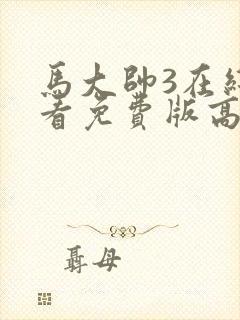 馬大帥3在
看免費版高
聶母